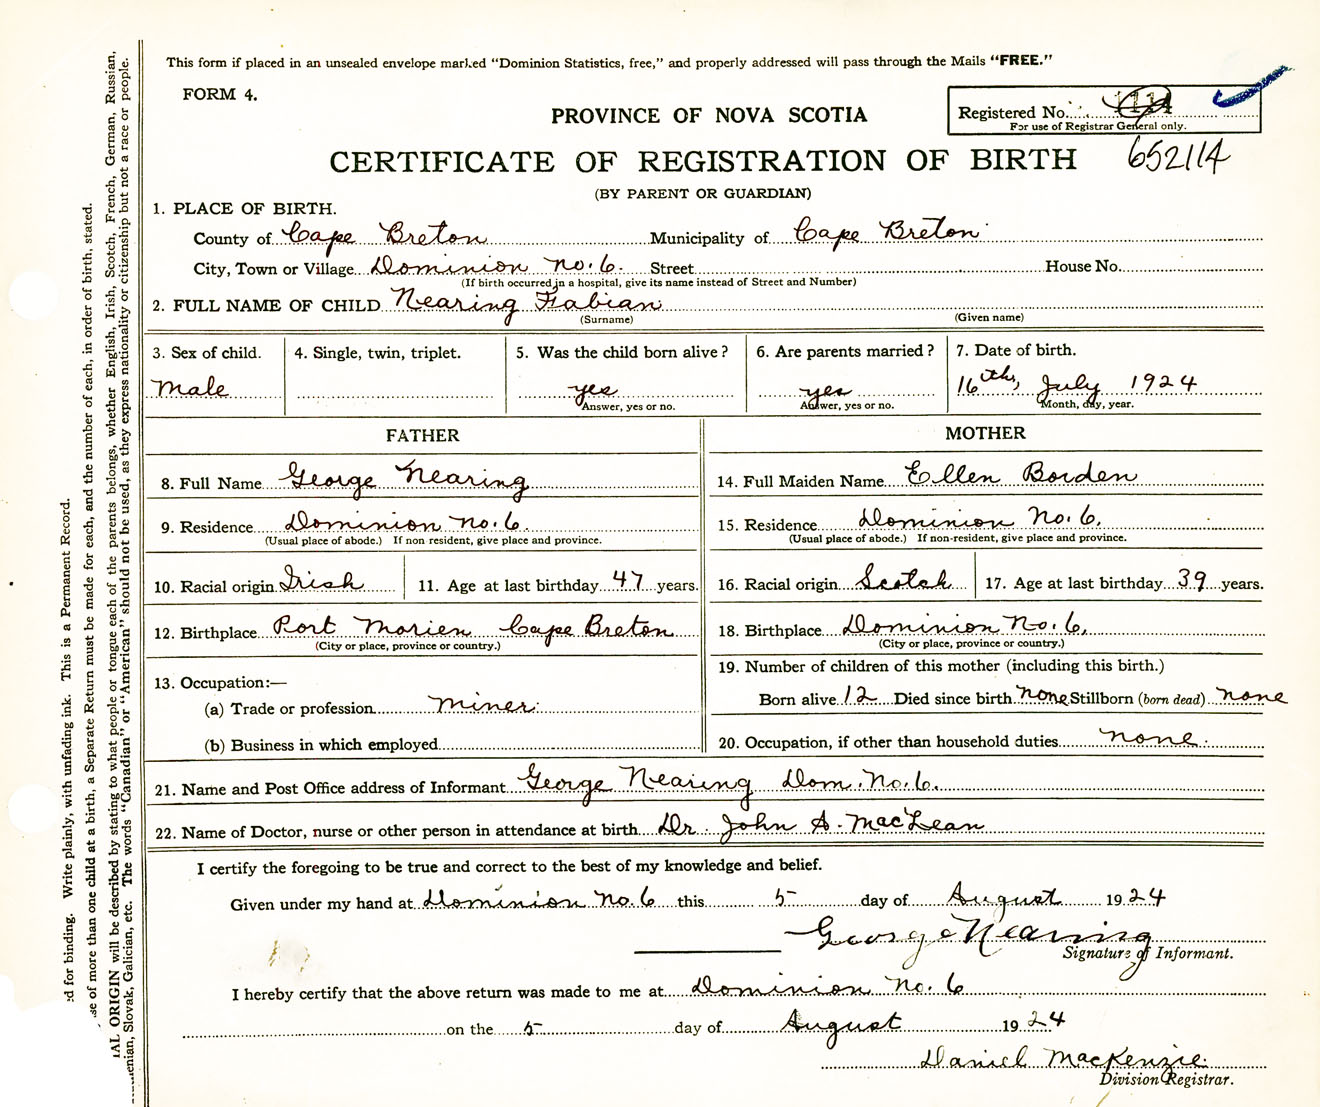 This form if placed in an unsealed envelope marked "Dominion Statistics, free," and properly addressed will pass through the Mails "FREE."
FORM 4.
PROVINCE OF NOVA SCOTIA
Registered No.
For use of Registrar General only.
CERTIFICATE OF REGISTRATION OF BIRTH 652114
(BY PARENT OR GUARDIAN)
1. PLACE OF BIRTH.
County of Cape Breton Municipality of Cape Breton
City, Town or Village Dominion No. 6. Street House No.
(If birth occurred in a hospital, give its name instead of Street and Number)
2. FULL NAME OF CHILD Nearing Fabian
(Surname) (Given name)
3. Sex of child. 4. Single, twin, triplet. 5. Was the child born alive? 6. Are parents married? 7. Date of birth.
Male yes yes 16th, July 1924
Answer, yes or no. Answer, yes or no. Month, day, year.
FATHER MOTHER
8. Full Name George Nearing 14. Full Maiden Name Ellen Borden
9. Residence Dominion No. 6. 15. Residence Dominion No. 6.
(Usual place of abode.) If non resident, give place and province. (Usual place of abode.) If non-resident, give place and province.
10. Racial origin Irish 11. Age at last birthday 47 years. 16. Racial origin Scotch 17. Age at last birthday 39 years.
12. Birthplace Port Morien Cape Breton 18. Birthplace Dominion No. 6,
(City or place, province or country.) (City or place, province or country.)
13. Occupation:— 19. Number of children of this mother (including this birth.)
(a) Trade or profession Miner. Born alive 12 Died since birth none Stillborn (born dead) none
(b) Business in which employed 20. Occupation, if other than household duties none.
21. Name and Post Office address of Informant George Nearing Dom. No. 6.
22. Name of Doctor, nurse or other person in attendance at birth Dr. John A. MacLean
I certify the foregoing to be true and correct to the best of my knowledge and belief.
Given under my hand at Dominion No. 6 this 5 day of August 1924
George Nearing
Signature of Informant.
I hereby certify that the above return was made to me at Dominion No. 6
on the 5 day of August 1924
Daniel MacKenzie.
Division Registrar.
ed for binding. Write plainly, with unfading ink. This is a Permanent Record.
se of more than one child at a birth, a Separate Return must be made for each, and the number of each, in order of birth, stated.
AL ORIGIN will be described by stating to what people or tongue each of the parents belongs, whether English, Irish, Scotch, French, German, Russian,
enian, Slovak, Galician, etc. The words "Canadian" or "American" should not be used, as they express nationality or citizenship but not a race or people.